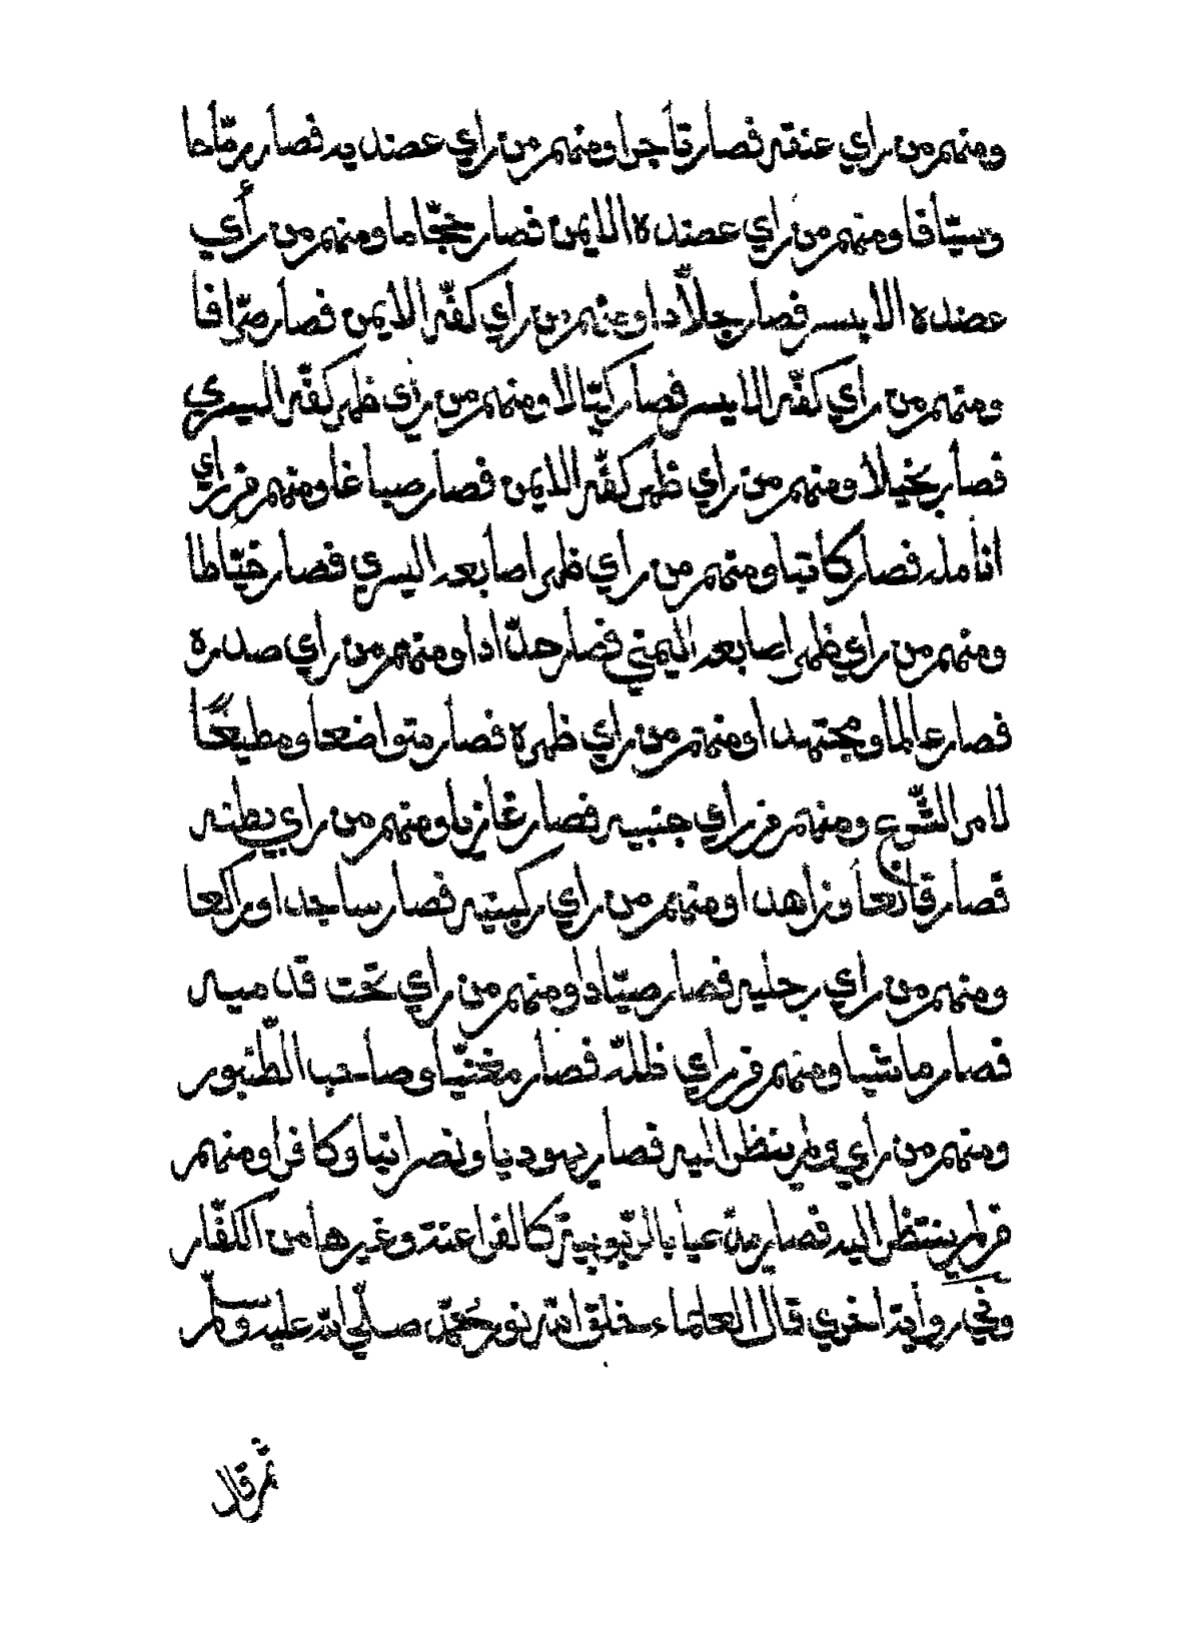 ومنهم من راي عنقه فصار تأجرا ومنهم من راي عضديه فصار رمّاحا
وسيّافا ومنهم من راي عضده الايمن فصار حجّاما ومنهم من رأي
عضده الايسر فصار جلاّدا ومنهم من رأي كفّه الايمن فصار صرّافا
ومنهم من راي كفّه الايسر فصار كيّالا ومنهم من رأي ظهر كفّه اليسري
فصار بخيلا ومنهم من راي ظهر كفّه الايمن فصار صباغا ومنهم من راي
انامله فصار كاتبا ومنهم من راي ظهر اصابعه اليسري فصار خيّاطا
ومنهم من راي ظهر اصابعه اليمني فصار حدّادا ومنهم من راي صدره
فصار عالما ومجتهدا ومنهم من راي ظهره فصار متواضعا ومطيعًا
لامر الشّرع ومنهم من راي جنبيه فصار غازيا ومنهم من راي بطنه
فصار قانعا وزاهدا ومنهم من راي ركبتيه فصار ساجدا وراكعا
ومنهم من راي رجليه فصار صيّادا ومنهم من راي تحت قدميه
فصار ماشيا ومنهم من راي ظلله فصار مغنّيا وصاحب الطّنبور
ومنهم من راي ولم ينظر اليه فصار يهوديا ونصرانيا وكافرا ومنهم
من لم ينتظر اليه فصار مدّعيا بالرّبوبيّة كالفراعنة وغيرها من الكفّار
وفي رواية اخري قال العلماء خلق الله نور محمّد صلّي الله عليه وسلّم
ثم قال